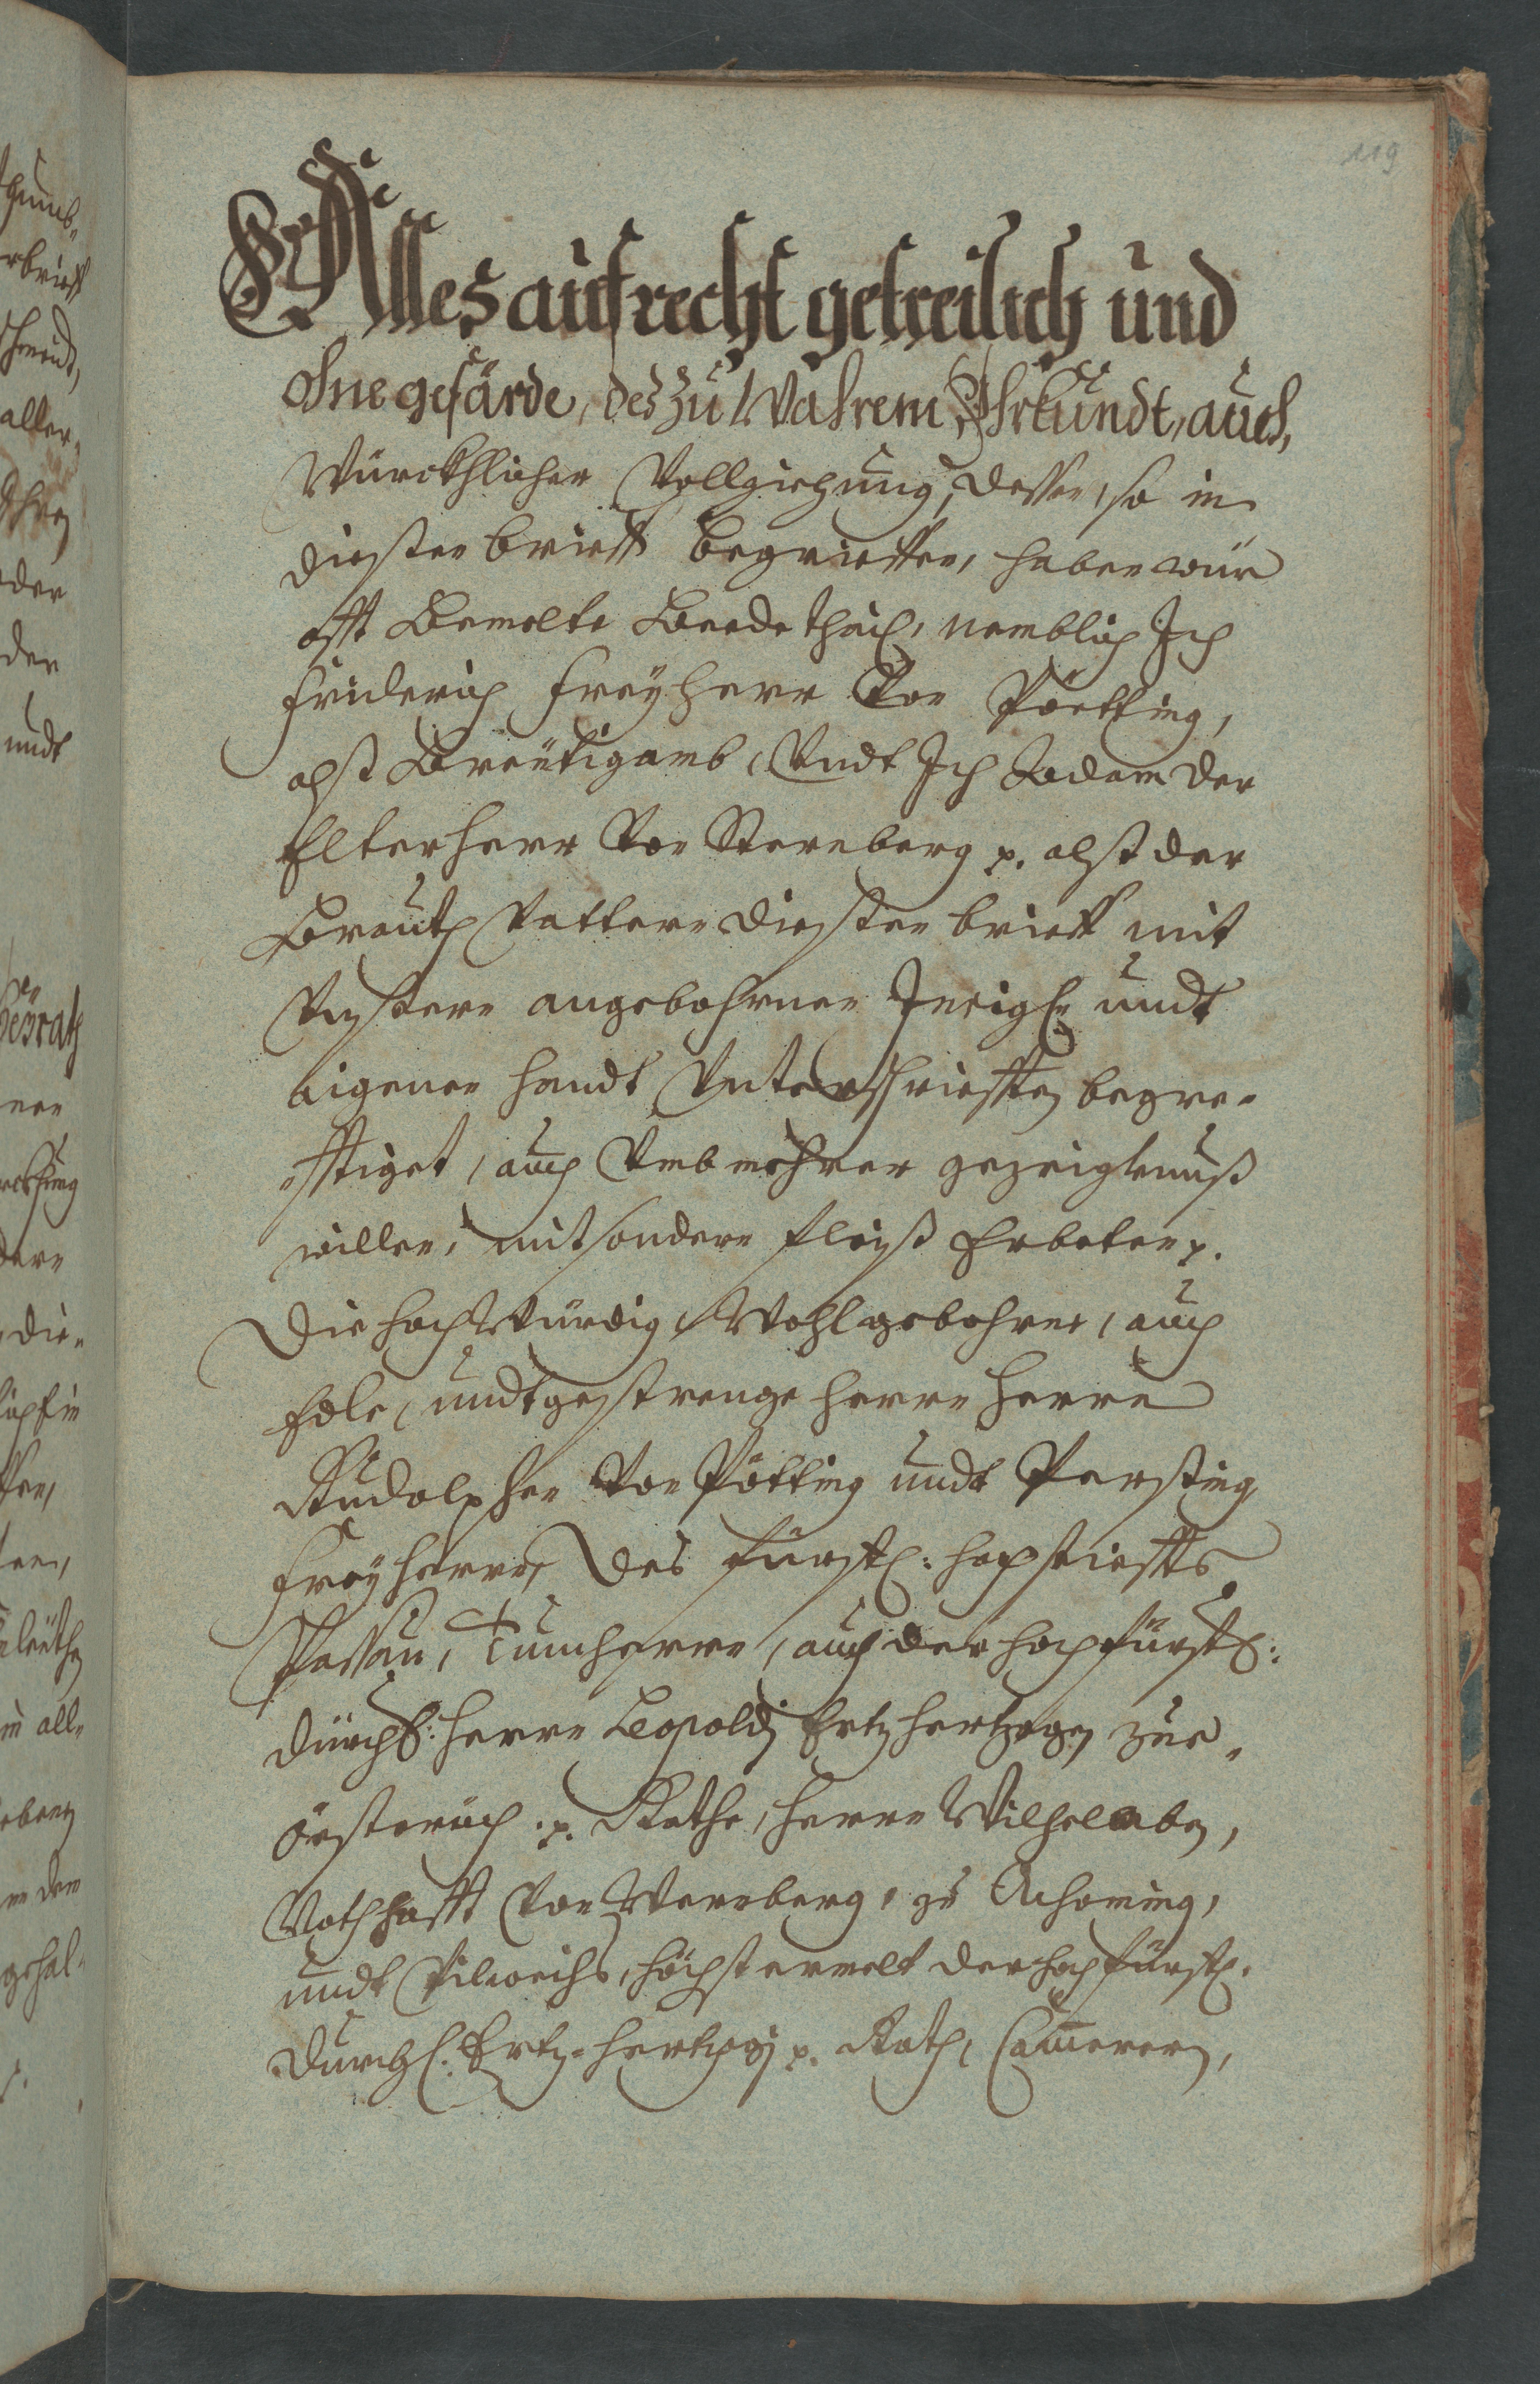 119
Alles aufrecht getreilich und
ohne gefärde, des zu Wahrem Uhrkundt, auch,
Würckhlicher Vollziehung, dessen, so in
diessen brieff begrieffen, haben wür
offt Bemelte Beede thail, nemblich Ich
Friderich Freyherr Von Pötting,
alß Breütigamb, Vndt Ich Adam der
Elter herr Von Sternberg p. alß der
Brauth Vattern diessen brieff mit
Vnssern angebohrnen Insigl undt
aigener handt Vnterschriefften becre-
fftiget, auch Vmb mehrer gezeigknuß
willen, mit sondern fleyß Erbeten p.
Die hochWürdig, Wohlgebohrne, auch
Edle, undt gestrenge herrn Herrn
Rudolphen Von Pötting undt Perssing
Freyherrn, des fürstl: hochstieffts
Passau, Tumherrn, auch der hochfürstl:
durchl: Herrn Leopoldj Ertzhertzogen zue
össterich p. Rathe, herrn Wilhelmben,
Nothhafft Von Wernberg, zu Achoming,
undt Pilweichs, höchsternelt der hochfürstl.
durchl: Ertz-hertzogs p. Rath, Camerern,
gehal-
undt
der
aller-